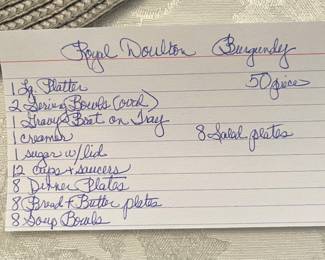 Royal Doulton Burgundy
1 Lg. Platter 50 piece
2 Serving Bowls (oval)
1 Gravy Boat on Tray
1 creamer 8 Salad plates
1 sugar w/lid
12 cups + saucers
8 Dinner Plates
8 Bread + Butter plates
8 Soup Bowls